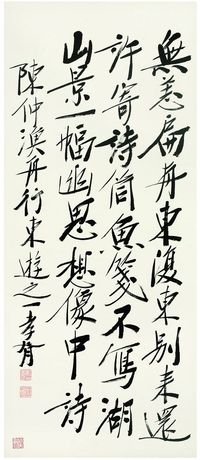 無恙扁舟東復東別來還
許寄詩筒魚箋不寫湖
山景一幅幽思想像中詩
陳仲漁舟行東遊之一孝胥